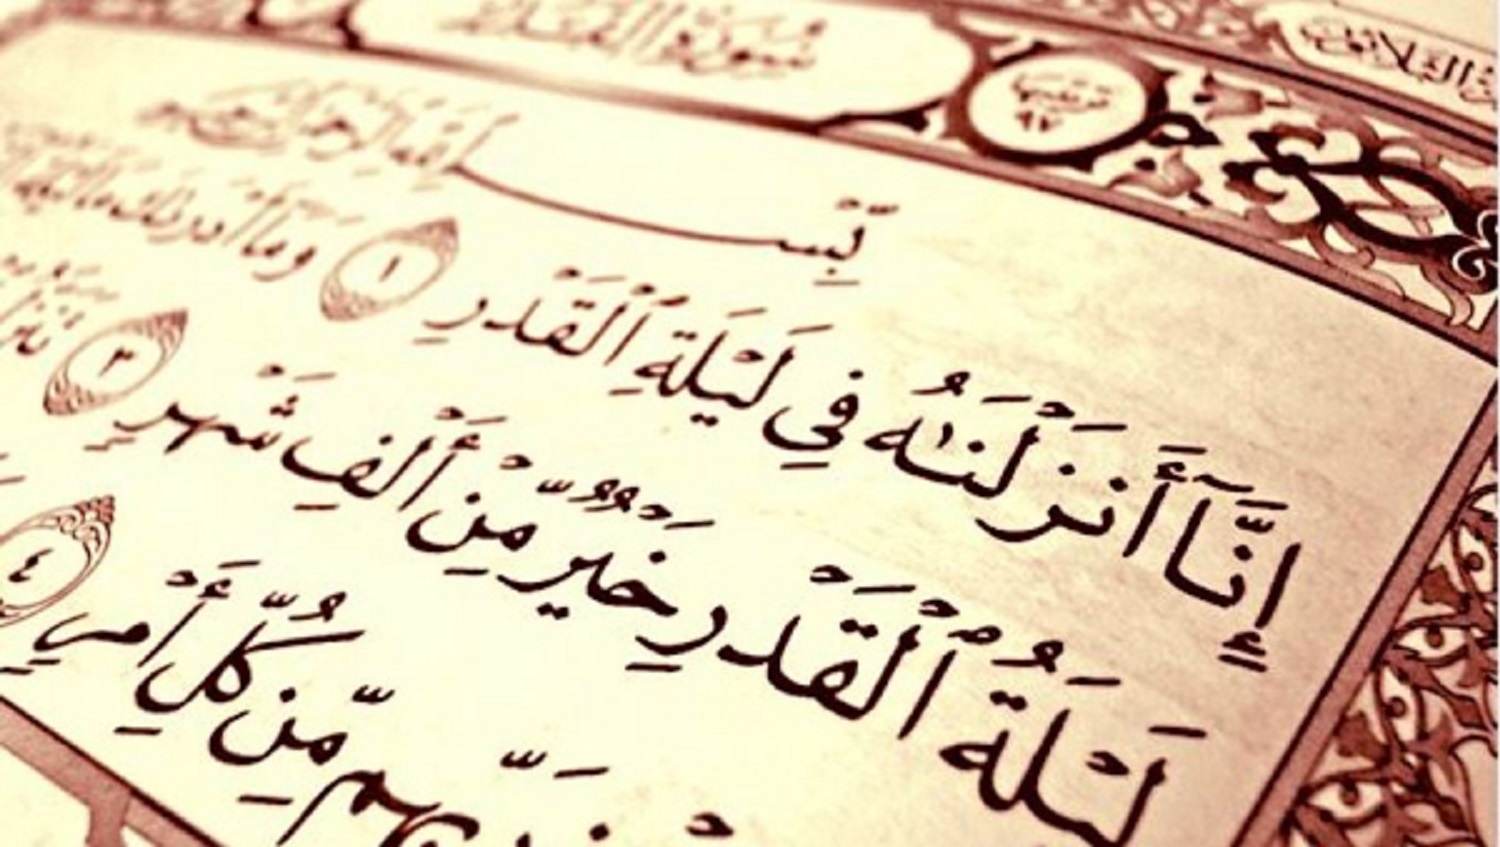 سُورَةُ القَدْرِ
ترتيبها ٩٧
بِّسْمِ ٱللَّهِ ٱلرَّحْمَٰنِ ٱلرَّحِيمِ
إِنَّآ أَنزَلْنَٰهُ فِي لَيْلَةِ ٱلْقَدْرِ ١ وَمَآ أَدْرَىٰكَ مَا لَيْلَةُ
لَيْلَةُ ٱلْقَدْرِ خَيْرٌ مِّنْ أَلْفِ شَهْرٍ ٣ تَنَزَّلُ
رَبِّهِم مِّن كُلِّ أَمْرٍ ٤